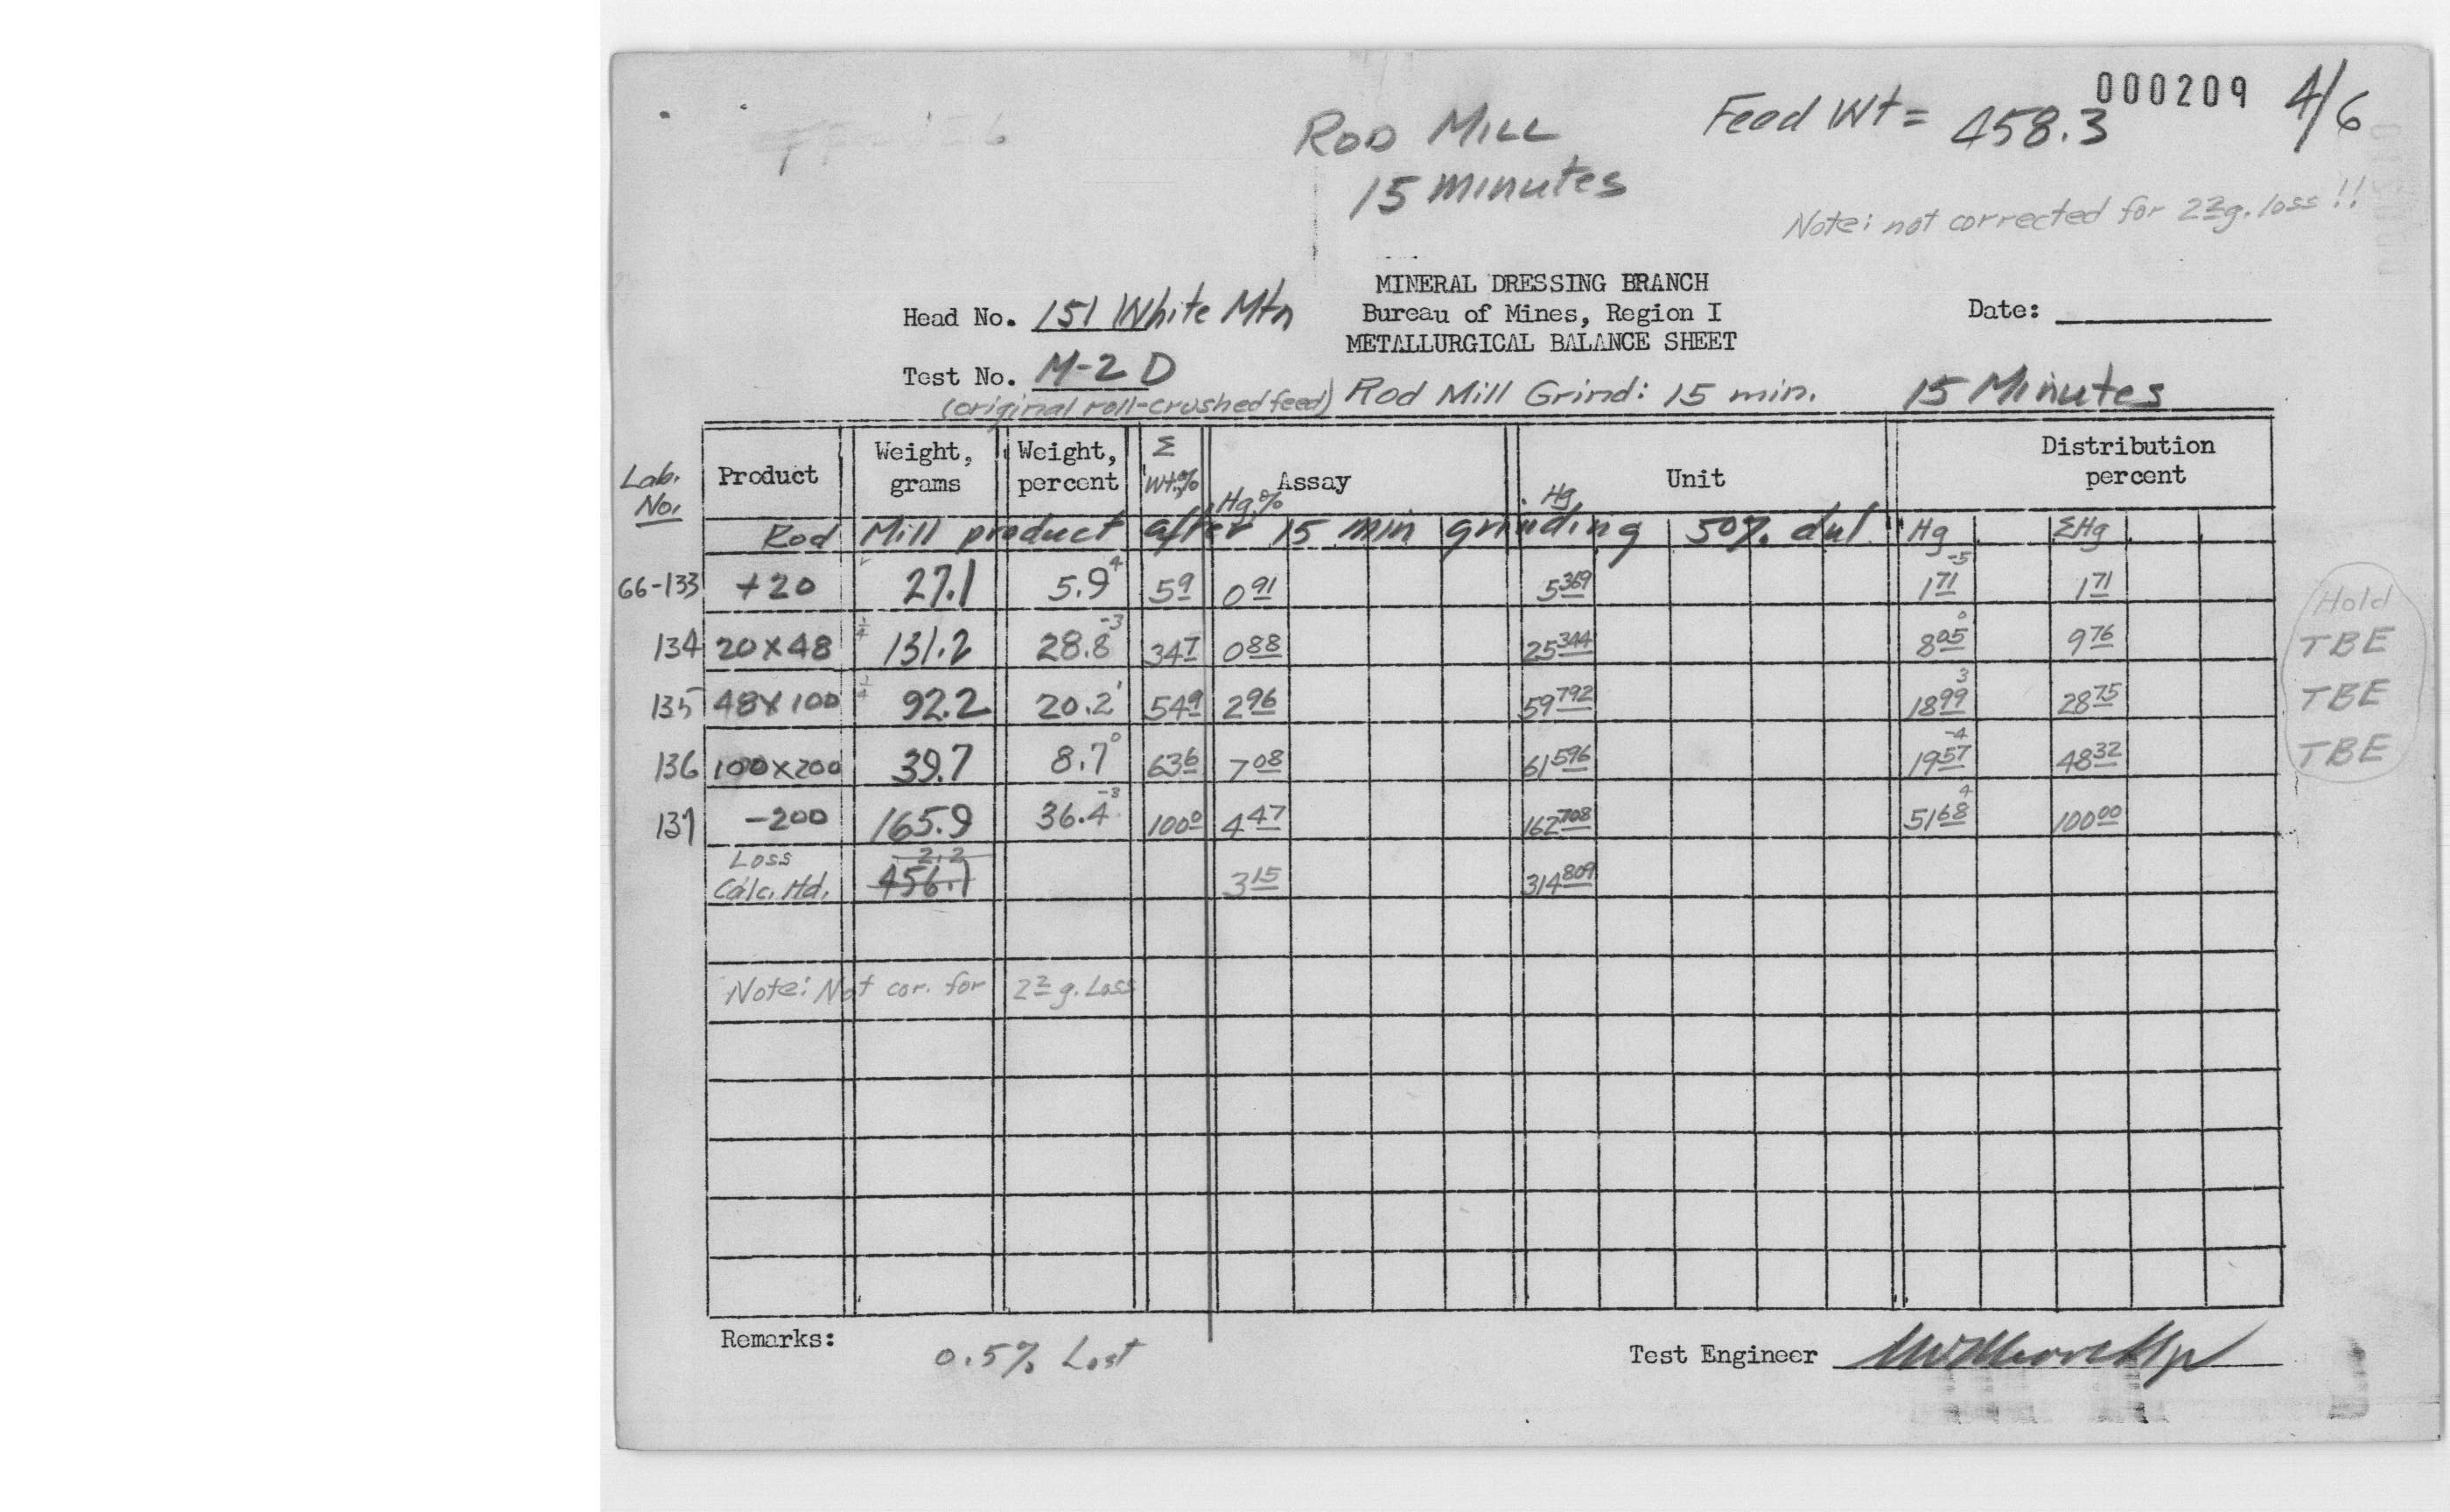 000209 4/6
ROD MILL Feed Wt = 458.3
15 minutes
Note: not corrected for 2.2g. loss!!
MINERAL DRESSING BRANCH
Head No. 151 White Mtn Bureau of Mines, Region I Date:
METALLURGICAL BALANCE SHEET
Test No. M-2 D
(original roll-crushed feed) Rod Mill Grind: 15 min. 15 Minutes
Lab. No. Product Weight, grams Weight, percent Σ Wt.% Assay Hg,% Unit Hg Distribution percent
Rod Mill product after 15 min grinding 50% Hg ΣHg
66-133 +20 27.1 5.9 4 5.9 0.91 5.369 -5 1.71 1.71 Hold
134 20x48 1/4 131.2 28.8 -3 34.7 0.88 25.344 0 8.05 9.76 TBE
135 48x100 1/4 92.2 20.2 1 54.9 2.96 59.792 3 18.99 28.75 TBE
136 100x200 39.7 8.7 0 63.6 7.08 61.596 -4 19.57 48.32 TBE
137 -200 165.9 36.4 -3 100.0 4.47 162.708 4 51.68 100.00
Loss 2.2
Calc. Hd. 456.1 3.15 314.809
Note: Not cor. for 2.2 g. Loss
Remarks: 0.5% Lost Test Engineer